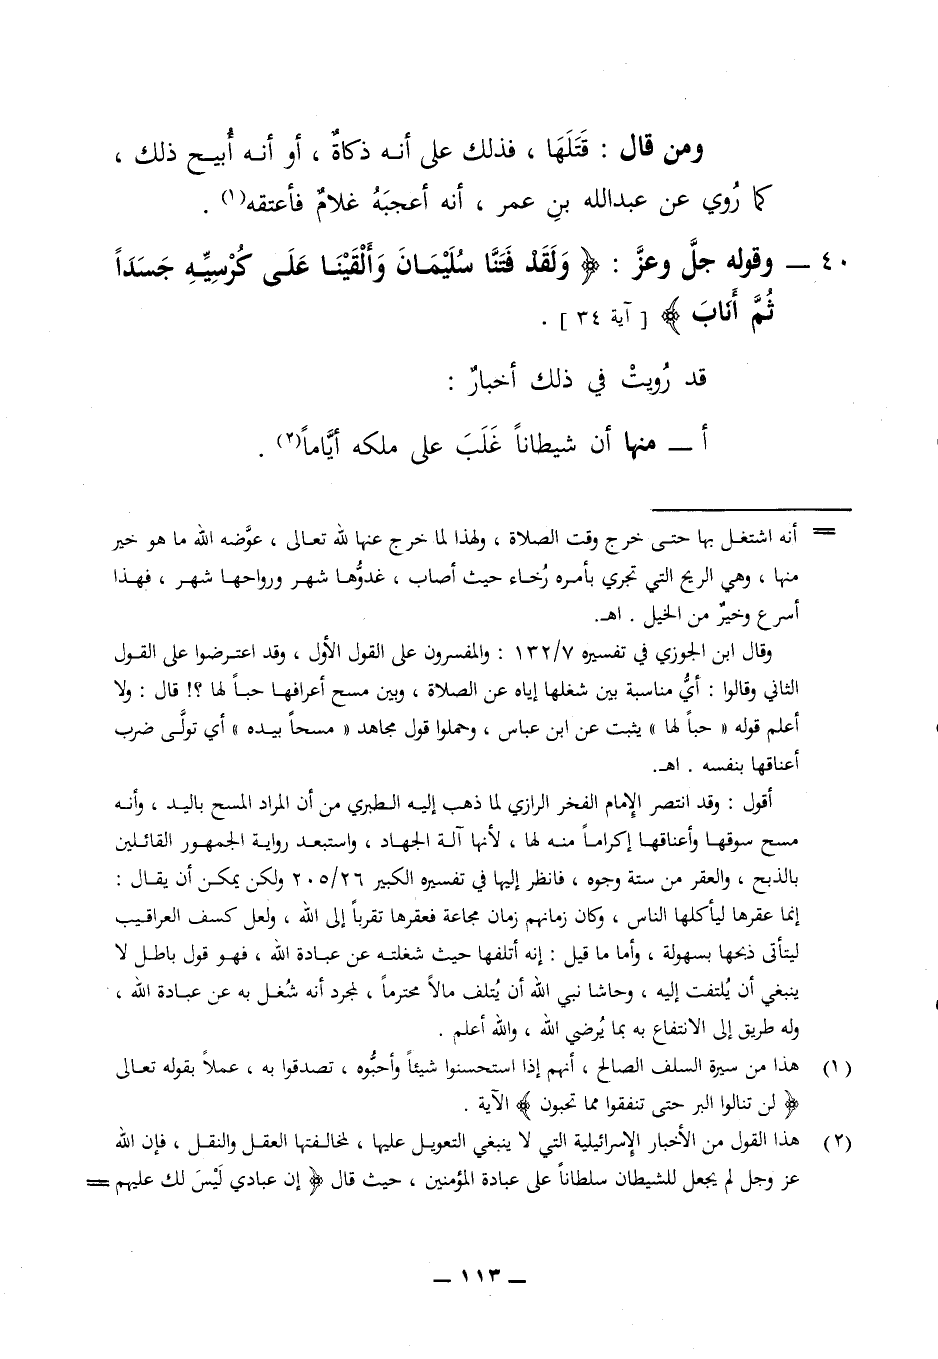 ومن قال : قَتَلَهَا ، فذلك على أنه ذكاةٌ ، أو أنه أُبيح ذلك ،
كما رُوي عن عبدالله بنِ عمر ، أنه أعجبَهُ غلامٌ فأعتقه(١) .
٤٠ ــ وقوله جلَّ وعزَّ : ﴿ وَلَقَدْ فَتَنَّا سُلَيْمَانَ وَأَلْقَيْنَا عَلَى كُرْسِيِّهِ جَسَدَاً
ثُمَّ أَنَابَ ﴾ [ آية ٣٤ ] .
قد رُويتْ في ذلك أخبارٌ :
أ ــ منها أن شيطاناً غَلَبَ على ملكه أيَّاماً(٢) .
= أنه اشتغل بها حتى خرج وقت الصلاة ، ولهذا لما خرج عنها لله تعالى ، عوَّضه الله ما هو خير
منها ، وهي الريح التي تجري بأمره رُخاء حيث أصاب ، غدوُّها شهر ورواحها شهر ، فهذا
أسرع وخيرٌ من الخيل . اهـ.
وقال ابن الجوزي في تفسيره ١٣٢/٧ : والمفسرون على القول الأول ، وقد اعترضوا على القول
الثاني وقالوا : أيُّ مناسبة بين شغلها إياه عن الصلاة ، وبين مسح أعرافها حباً لها ؟! قال : ولا
أعلم قوله « حباً لها » يثبت عن ابن عباس ، وحملوا قول مجاهد « مسحاً بيده » أي تولَّى ضرب
أعناقها بنفسه . اهـ.
أقول : وقد انتصر الإمام الفخر الرازي لما ذهب إليه الطبري من أن المراد المسح باليد ، وأنه
مسح سوقها وأعناقها إكراماً منه لها ، لأنها آلة الجهاد ، واستبعد رواية الجمهور القائلين
بالذبح ، والعقر من ستة وجوه ، فانظر إليها في تفسيره الكبير ٢٠٥/٢٦ ولكن يمكن أن يقال :
إنما عقرها ليأكلها الناس ، وكان زمانهم زمان مجاعة فعقرها تقرباً إلى الله ، ولعل كسف العراقيب
ليتأتى ذبحها بسهولة ، وأما ما قيل : إنه أتلفها حيث شغلته عن عبادة الله ، فهو قول باطل لا
ينبغي أن يُلتفت إليه ، وحاشا نبي الله أن يُتلف مالاً محترماً ، لمجرد أنه شُغل به عن عبادة الله ،
وله طريق إلى الانتفاع به بما يُرضي الله ، والله أعلم .
(١) هذا من سيرة السلف الصالح ، أنهم إذا استحسنوا شيئاً وأحبُّوه ، تصدقوا به ، عملاً بقوله تعالى
﴿ لن تنالوا البر حتى تنفقوا مما تحبون ﴾ الآية .
(٢) هذا القول من الأخبار الإسرائيلية التي لا ينبغي التعويل عليها ، لمخالفتها العقل والنقل ، فإن الله
عز وجل لم يجعل للشيطان سلطاناً على عبادة المؤمنين ، حيث قال ﴿ إن عبادي لَيْسَ لك عليهم =
ــ ١١٣ ــ